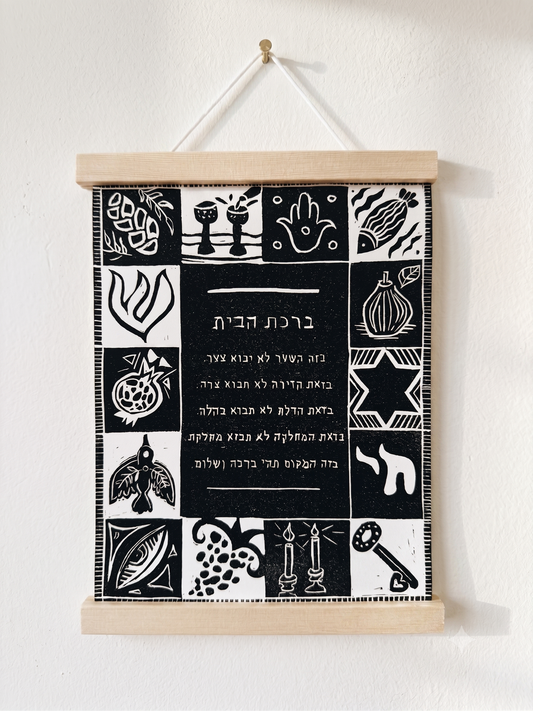 ש
ברכת הבית
בזה השער לא יבוא צער.
בזאת הדירה לא תבוא צרה.
בזאת הדלת לא תבוא בהלה.
בזאת המחלקה לא תבוא מחלקת.
בזה המקום תהי ברכה ושלום.
חי